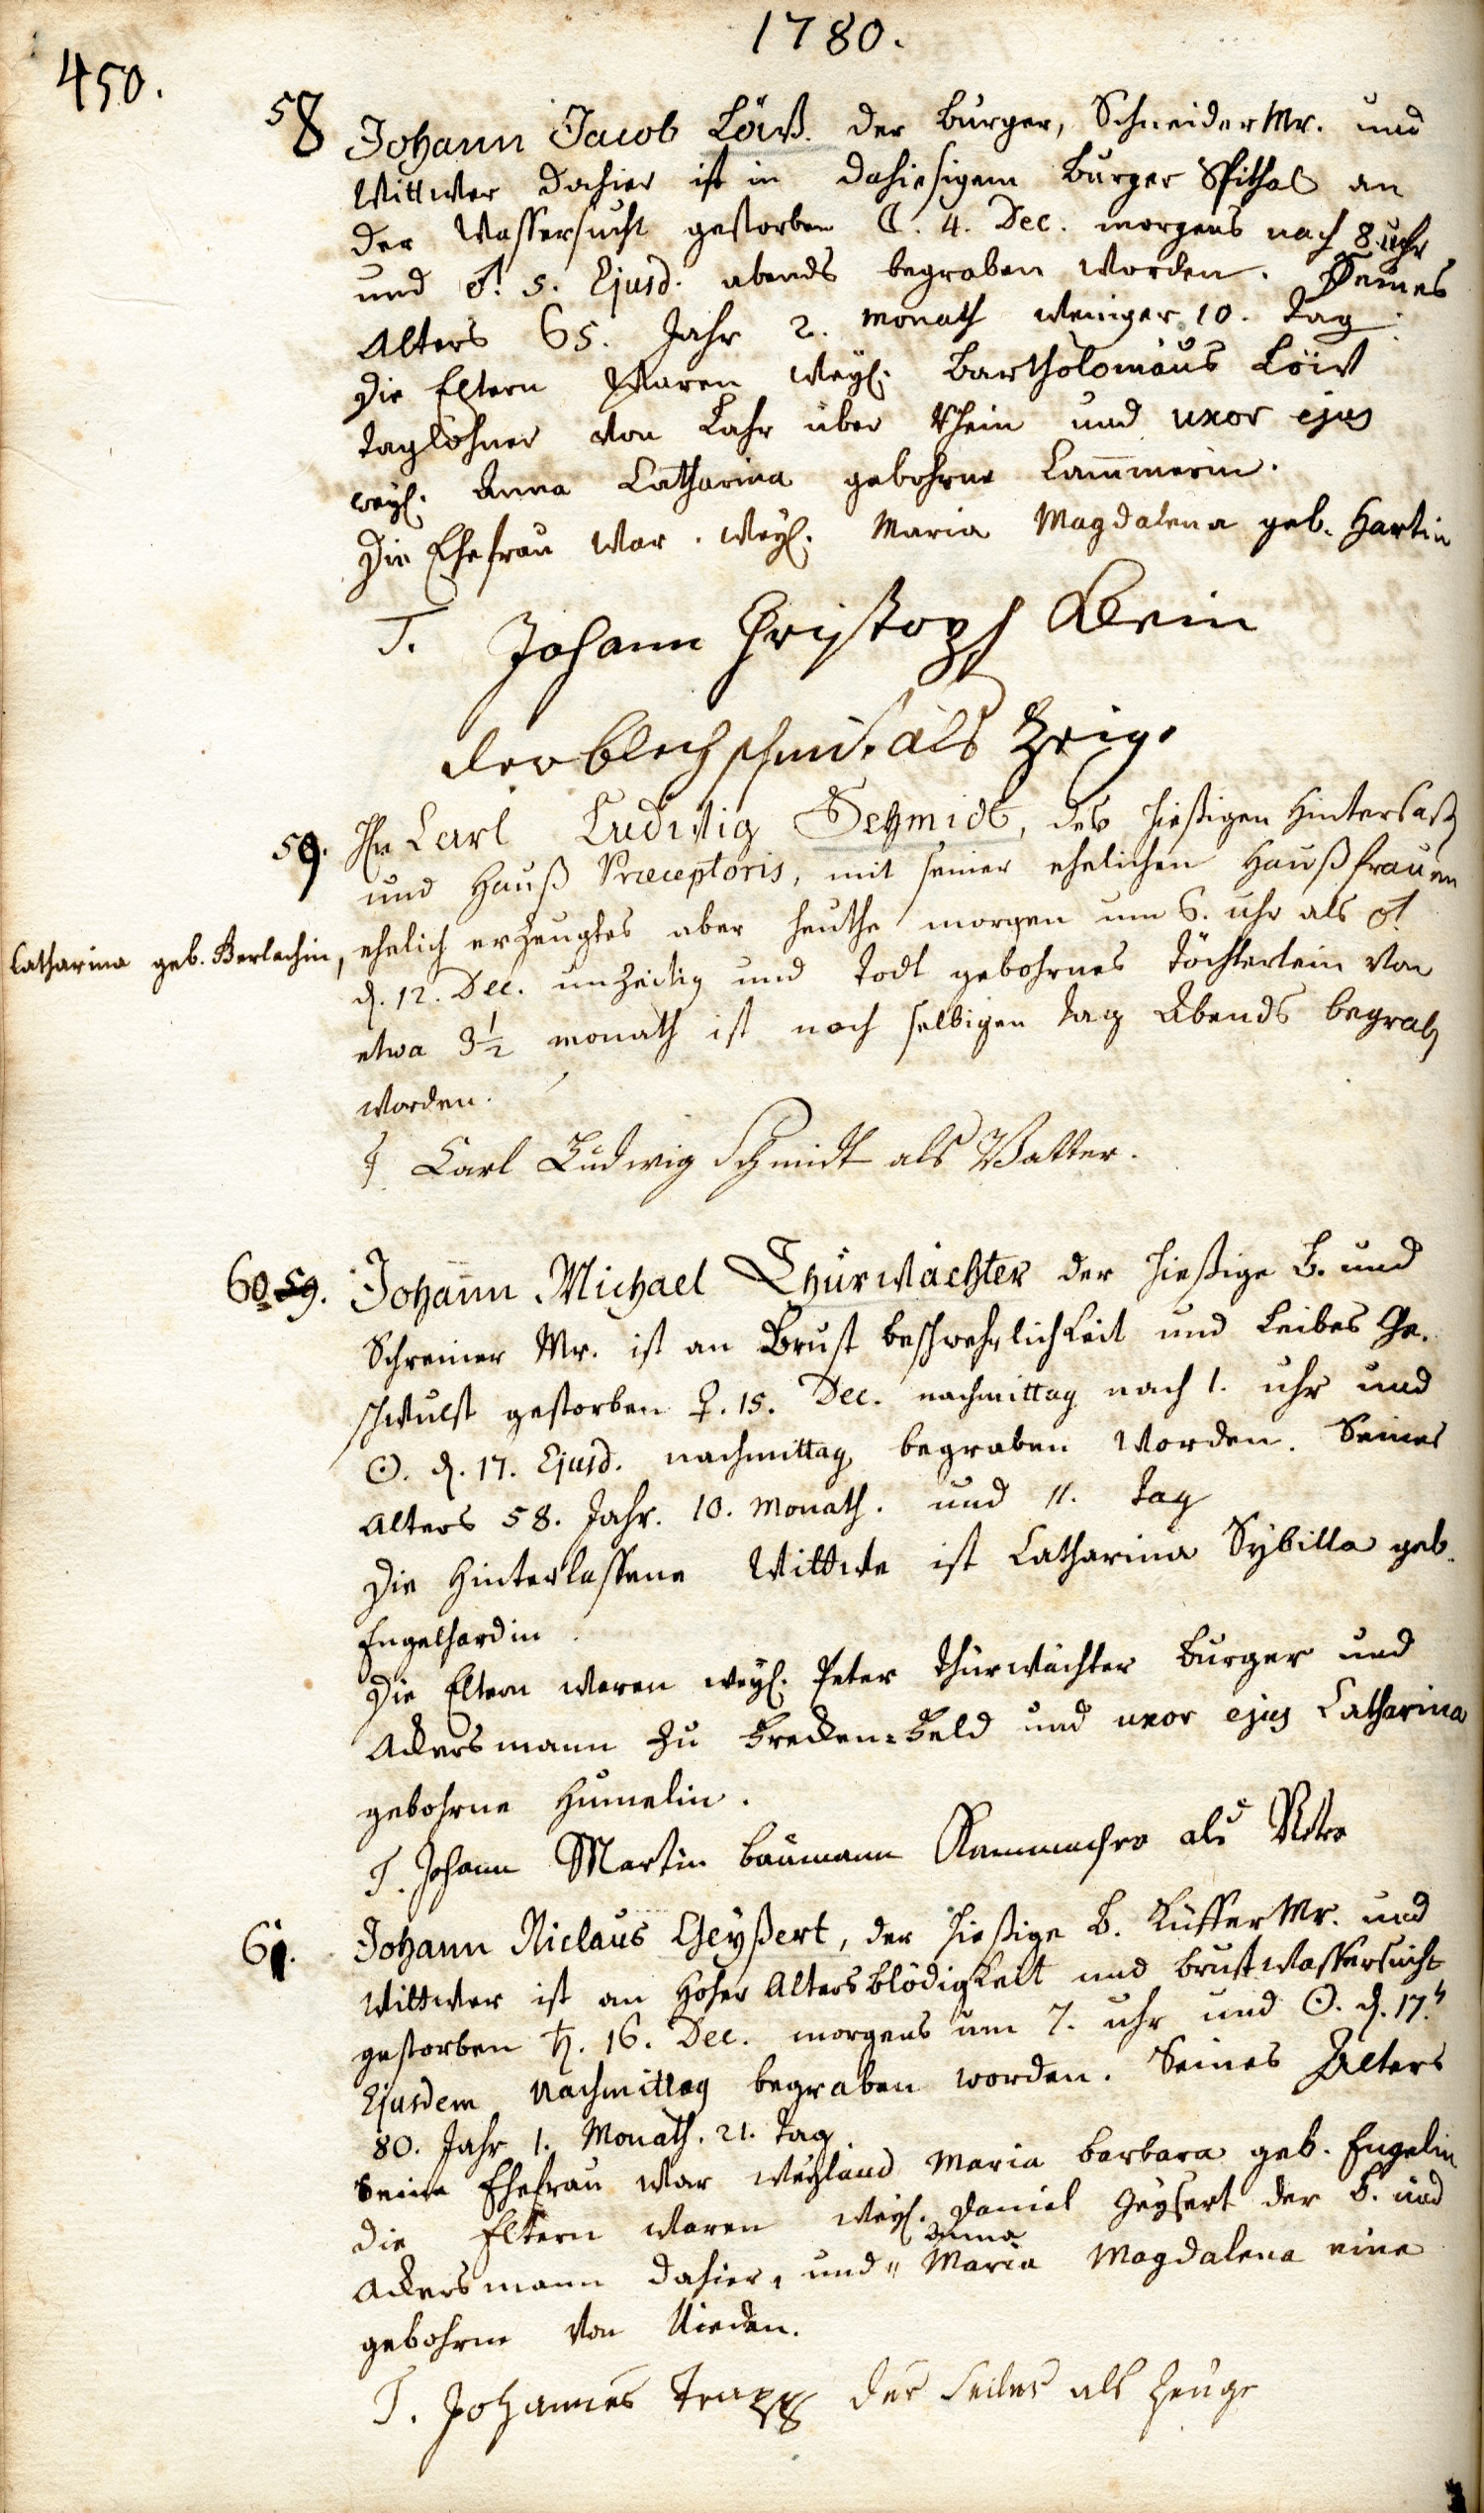 1780.
450.
58 Johann Jacob Löw. der Burger, Schneider Mr. und
Wittwer dahier ist in dahiesigem Burger Spithal an
der Wassersucht gestorben ☾. 4. Dec. morgens nach 8. uhr
und ♂. 5. Ejusd. abends begraben worden. Seines
Alters 65. Jahr 2. Monath weniger 10. Tag.
Die Eltern waren weyl. Bartholomäus Löw
Taglöhner von Lahr über Rhein und uxor ejus
weyl. Anna Catharina gebohrne Lam̄merin.
Die Ehefrau war weyl. Maria Magdalena geb. Hartin
T. Johann Christoph Klein
der blechschmit als Zeig.
59. Hn Carl Ludwig Schmidt, des hießigen Hintersaß
und Hauß Præceptoris, mit seiner ehelichen Haußfrauen
Catharina geb. Berlachin,
ehelich erzeugtes aber heuthe morgen um 6. uhr als ♂.
d. 12. Dec. unzeitig und todt gebohrnes Töchterlein von
etwa 3½ monath ist noch selbigen Tag Abends begrab
worden.
T Carl Ludwig Schmidt als Vatter.
60. 59. Johann Michael Thürwächter der hießige B. und
Schreiner Mr. ist an Brust beschwehrlichkeit und Leibes Ge-
schwulst gestorben ♀. 15. Dec. nachmittag nach 1. uhr und
☉. d. 17. Ejusd. nachmittag begraben worden. Seines
Alters 58. Jahr. 10. Monath. und 11. Tag
Die Hinterlassene Wittwe ist Catharina Sybilla geb.
Engelhardin.
Die Eltern waren weyl. Peter Thürwächter Burger und
Ackersmann zu und uxor ejus Catharina
gebohrne Humelin.
T. Johann Martin Baumann Kammacher als
61. Johann Niclaus Geyßert, der hießige B. Küffer Mr. und
Wittwer ist an hoher Altersblödigkeit und brustwassersucht
gestorben ♄. 16. Dec. morgens um 7. uhr und ☉. d. 17.
Ejusdem Nachmittag begraben worden. Seines Alters
80. Jahr 1. Monath. 21. Tag.
Seine Ehefrau war weyland Maria Barbara geb. Engelin
die Eltern waren weyl. Daniel Geyßert der B. und
Anna
Ackersmann dahier, und Maria Magdalena eine
gebohrne von Nieden.
T. Johannes Trapp der Seiler als Zeuge